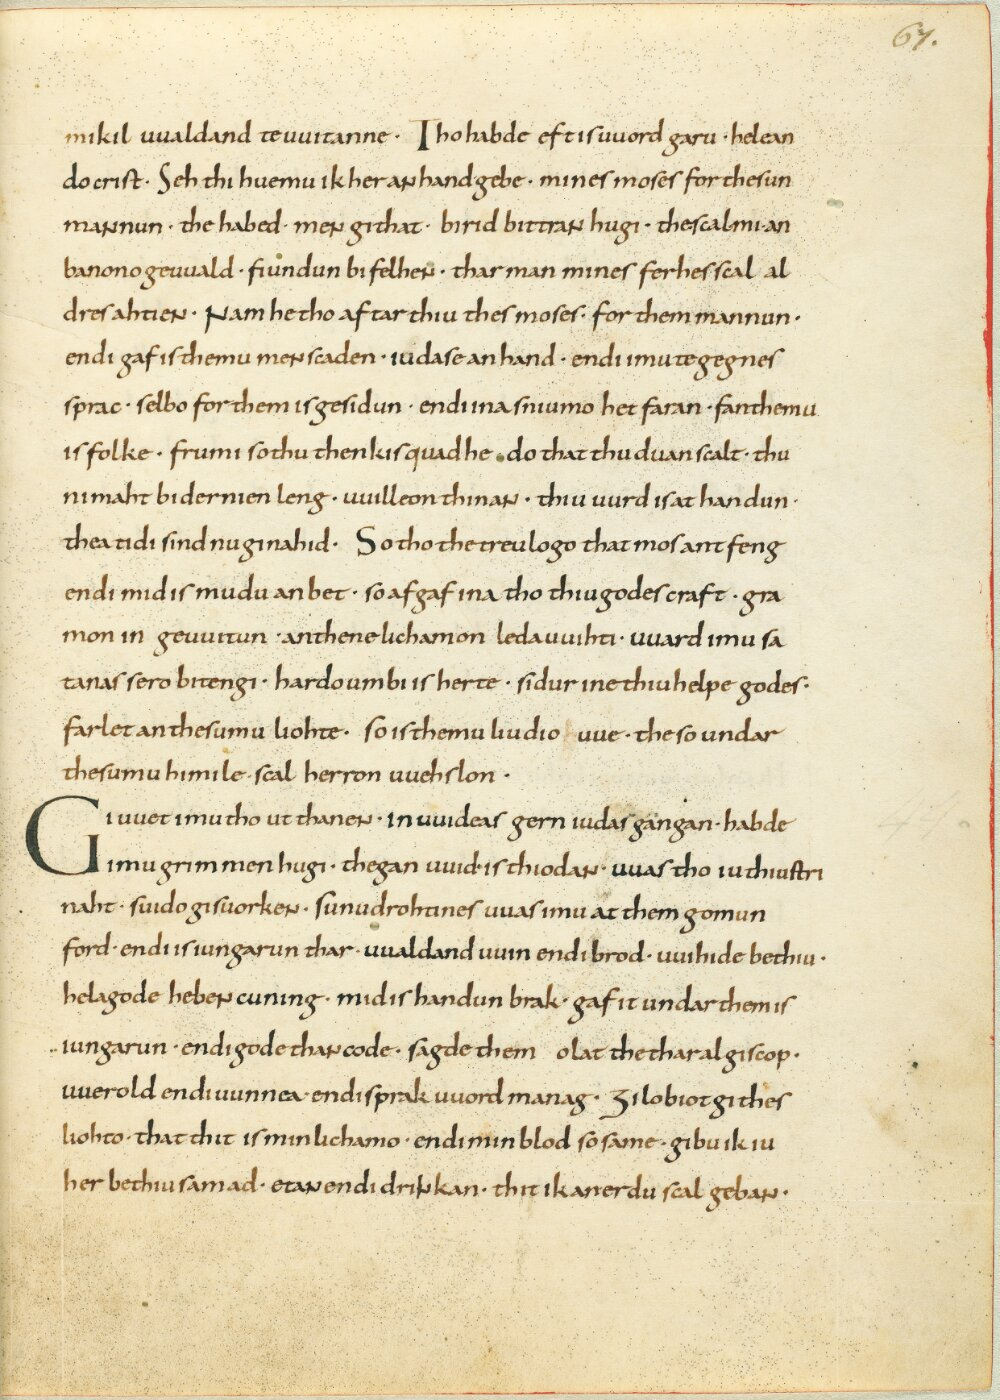 67.
mikil uualdand te uuitanne · Tho habde eft is uuord garu · helean
do crist · Seh thi huemu ik her an hand gebe · mines moses for thesun
mannun · the habed · men githat · birid bittran hugi · the scal mi an
banono geuuald · fiundun bifelhen · thar man mines ferhes scal al
dres ahtien · Nam he tho aftar thiu thes moses · for them mannun ·
endi gaf is themu menscaden · iudase an hand · endi imu tegegnes
sprac · selbo for them is gesidun · endi ina sniumo het faran · fan themu
is folke · frumi so thu thenkis quad he · do that thu duan scalt · thu
ni maht bidernien leng · uuilleon thinan · thiu uurd is at handun ·
thea tidi sind nu ginahid · So tho the treulogo that mos antfeng
endi mid is mudu anbet · so afgaf ina tho thiu godes craft · gra
mon in geuuitun · an thene lichamon leda uuihti · uuard imu sa
tanas sero bitengi · hardo umbi is herte · sidur ine thiu helpe godes ·
farlet an thesumu liohte · so is themu liudio uue · the so undar
thesumu himile · scal herron uuehslon ·
Giuuet imu tho ut thanen · inuuideas gern iudas gangan · habde
imu grimmen hugi · thegan uuid is thiodan · uuas tho iu thiustri
naht · suido gisuorken · sunu drohtines uuas imu at them gomun
ford · endi is iungarun thar · uualdand uuin endi brod · uuihide bethiu ·
helag ode heben cuning · mid is handun brak · gaf it undar them is
iungarun · endi gode thancode · sagde them olat the thar al giscop ·
uuerold endi uunnea · endi sprak uuord manag · Gilobiot gi thes
liohto · that thit is min lichamo · endi min blod so same · gibu ik iu
her bethiu samad · etan endi drinkan · thit ik an erdu scal geban ·